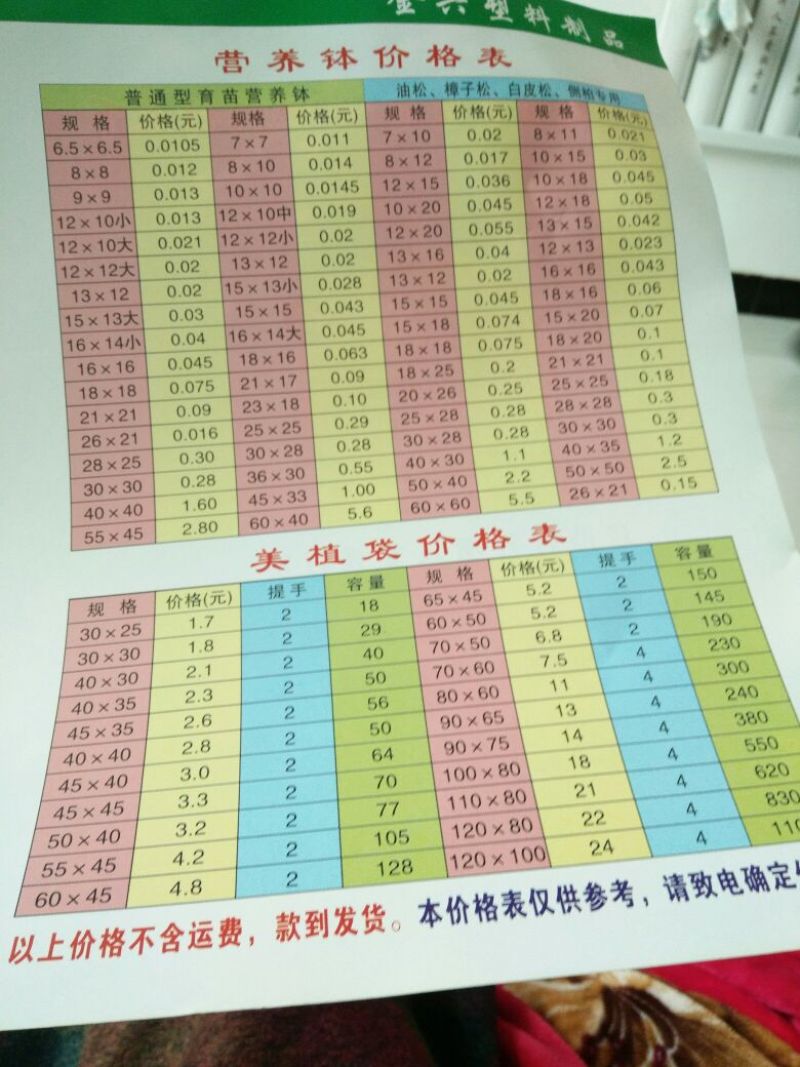 金兴塑料制品
营养钵价格表
普通型育苗营养钵 油松、樟子松、白皮松、侧柏专用
规格 价格(元) 规格 价格(元) 规格 价格(元) 规格 价格(元)
6.5×6.5 0.0105 7×7 0.011 7×10 0.02 8×11 0.021
8×8 0.012 8×10 0.014 8×12 0.017 10×15 0.03
9×9 0.013 10×10 0.0145 12×15 0.036 10×18 0.045
12×10小 0.013 12×10中 0.019 10×20 0.045 12×18 0.05
12×10大 0.021 12×12小 0.02 12×20 0.055 13×15 0.042
12×12大 0.02 13×12 0.02 13×16 0.04 12×13 0.023
13×12 0.02 15×13小 0.028 13×12 0.02 16×16 0.043
15×13大 0.03 15×15 0.043 15×15 0.045 18×16 0.06
16×14小 0.04 16×14大 0.045 15×18 0.074 15×20 0.07
16×16 0.045 18×16 0.063 18×18 0.075 18×20 0.1
18×18 0.075 21×17 0.09 18×25 0.2 21×21 0.1
21×21 0.09 23×18 0.10 20×26 0.25 25×25 0.18
26×21 0.016 25×25 0.29 25×28 0.28 28×28 0.3
28×25 0.30 30×28 0.28 30×28 0.28 30×30 0.3
30×30 0.28 36×30 0.55 40×30 1.1 40×35 1.2
40×40 1.60 45×33 1.00 50×40 2.2 50×50 2.5
55×45 2.80 60×40 5.6 60×60 5.5 26×21 0.15
美植袋价格表
规格 价格(元) 提手 容量 规格 价格(元) 提手 容量
30×25 1.7 2 18 65×45 5.2 2 150
30×30 1.8 2 29 60×50 5.2 2 145
40×30 2.1 2 40 70×50 6.8 2 190
40×35 2.3 2 50 70×60 7.5 4 230
45×35 2.6 2 56 80×60 11 4 300
40×40 2.8 2 50 90×65 13 4 240
45×40 3.0 2 64 90×75 14 4 380
45×45 3.3 2 70 100×80 18 4 550
50×40 3.2 2 77 110×80 21 4 620
55×45 4.2 2 105 120×80 22 4 830
60×45 4.8 2 128 120×100 24 4 110
以上价格不含运费，款到发货。本价格表仅供参考，请致电确定